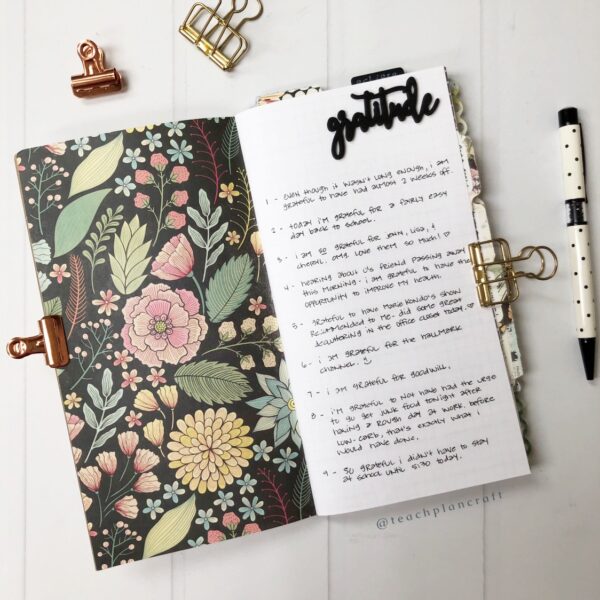 gratitude
1 - even though it wasn't long enough, i am
grateful to have had almost 2 weeks off.
2 - today i'm grateful for a fairly easy
day back to school.
3 - i am so grateful for jenn, lisa, &
cheryl. omg. love them so much! ♡
4 - hearing about friend passing away
this morning - i am grateful to have the
opportunity to improve my health.
5 - grateful to have marie kondo's show
recommended to me - did some great
decluttering in the office closet today.
6 - i am grateful for the hallmark
channel.
7 - i am grateful for goodwill.
8 - i'm grateful to not have had the urge
to go get junk food tonight after
having a rough day at work. before
low-carb, that's exactly what i
would have done.
9 - so grateful i didn't have to stay
at school until 5:30 today.
@teachplancraft